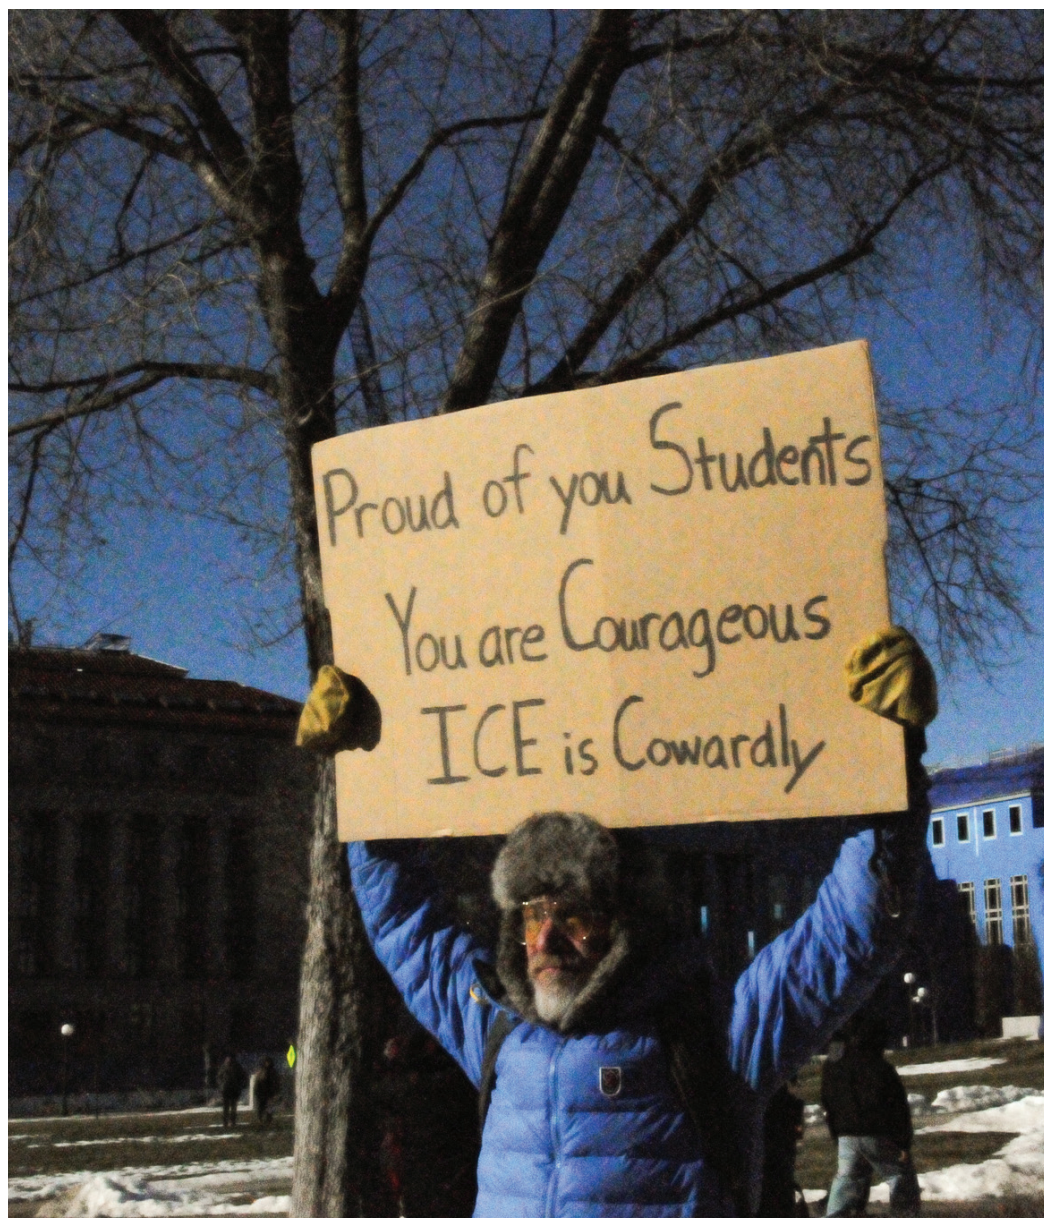 Proud of you Students
You are Courageous
ICE is Cowardly